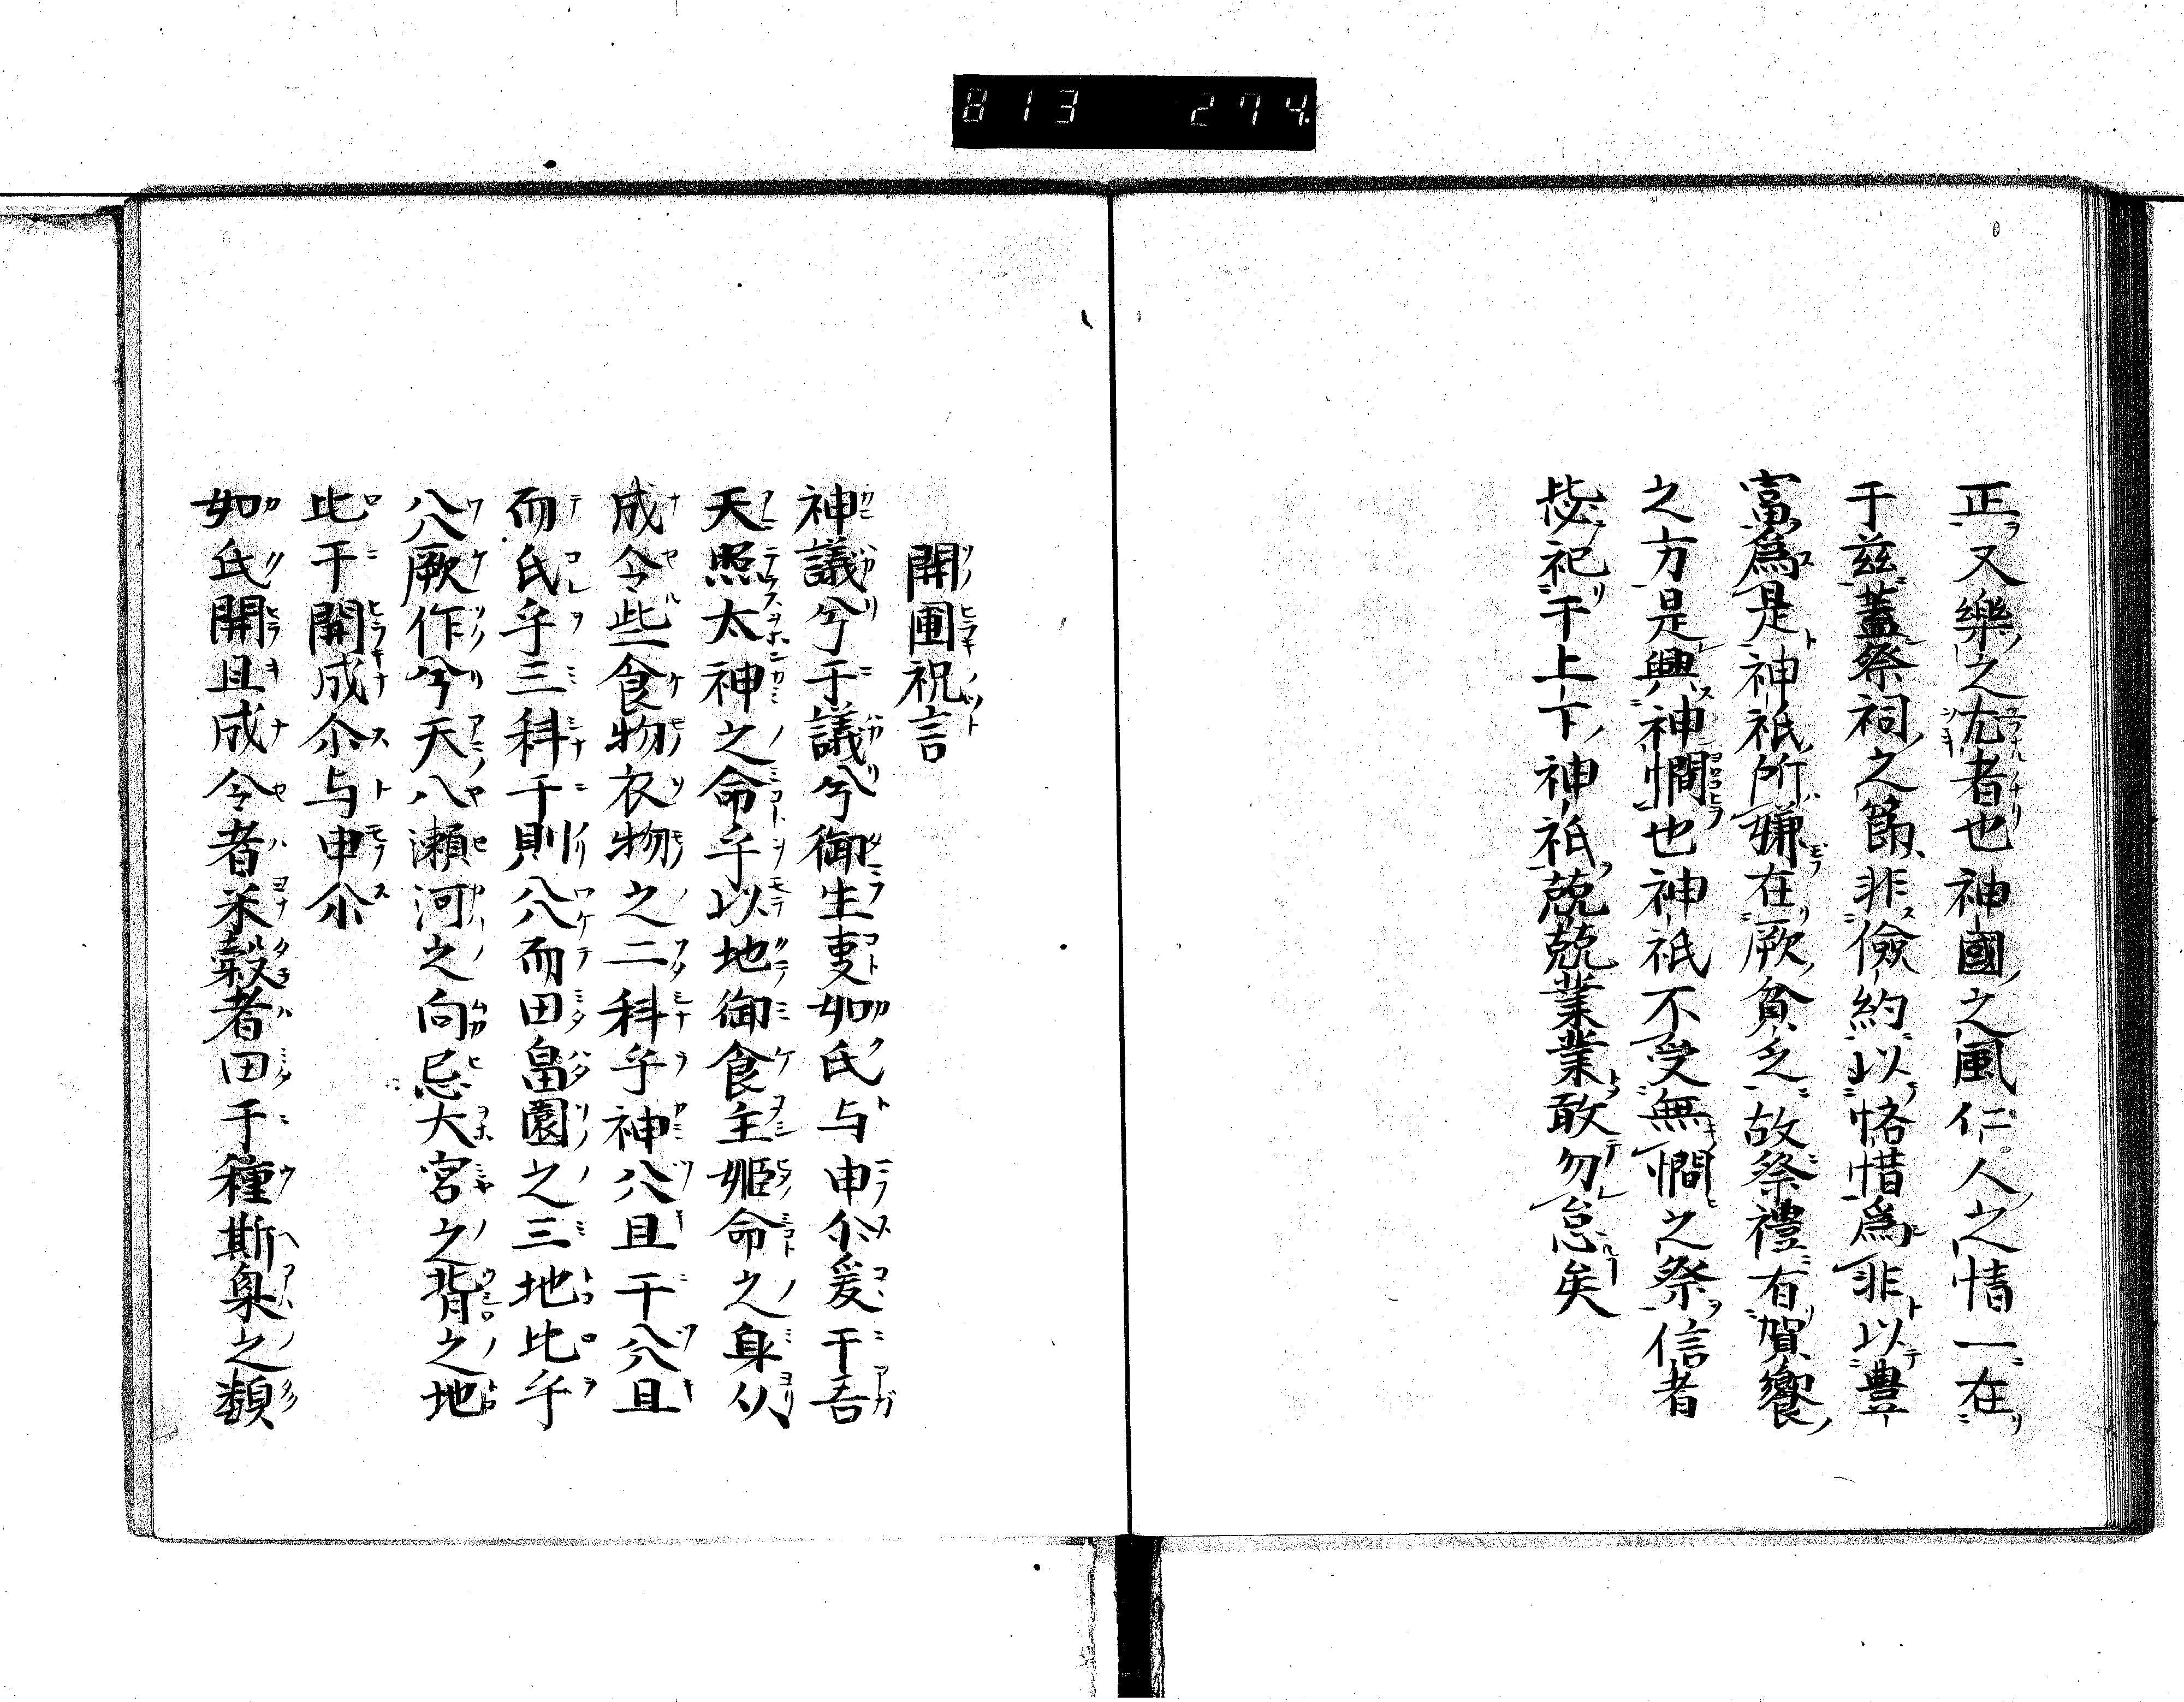 813 274
正又樂之尤者也神國之風仁人之情一在
于兹蓋祭祠之節非儉約以悋惜爲非以豊
富爲是神祇所嫌在厥貧乏故祭禮有賀饗
之方是興神憪也神祇不受無憪之祭信者
毖祀于上下神祇兢兢業業敢勿怠矣
開圃祝言
神議兮于議兮御生叓如氏与申尒爰于吾
天照太神之命乎以地御食主姫命之身从
成令些食物衣物之二科乎神八且于八且
而氏乎三科于則八而田畠園之三地比乎
八厥作兮天八瀬河之向忌大宮之背之地
比于開成尒与申尒
如氏開且成令者米穀者田于種斯枲之類